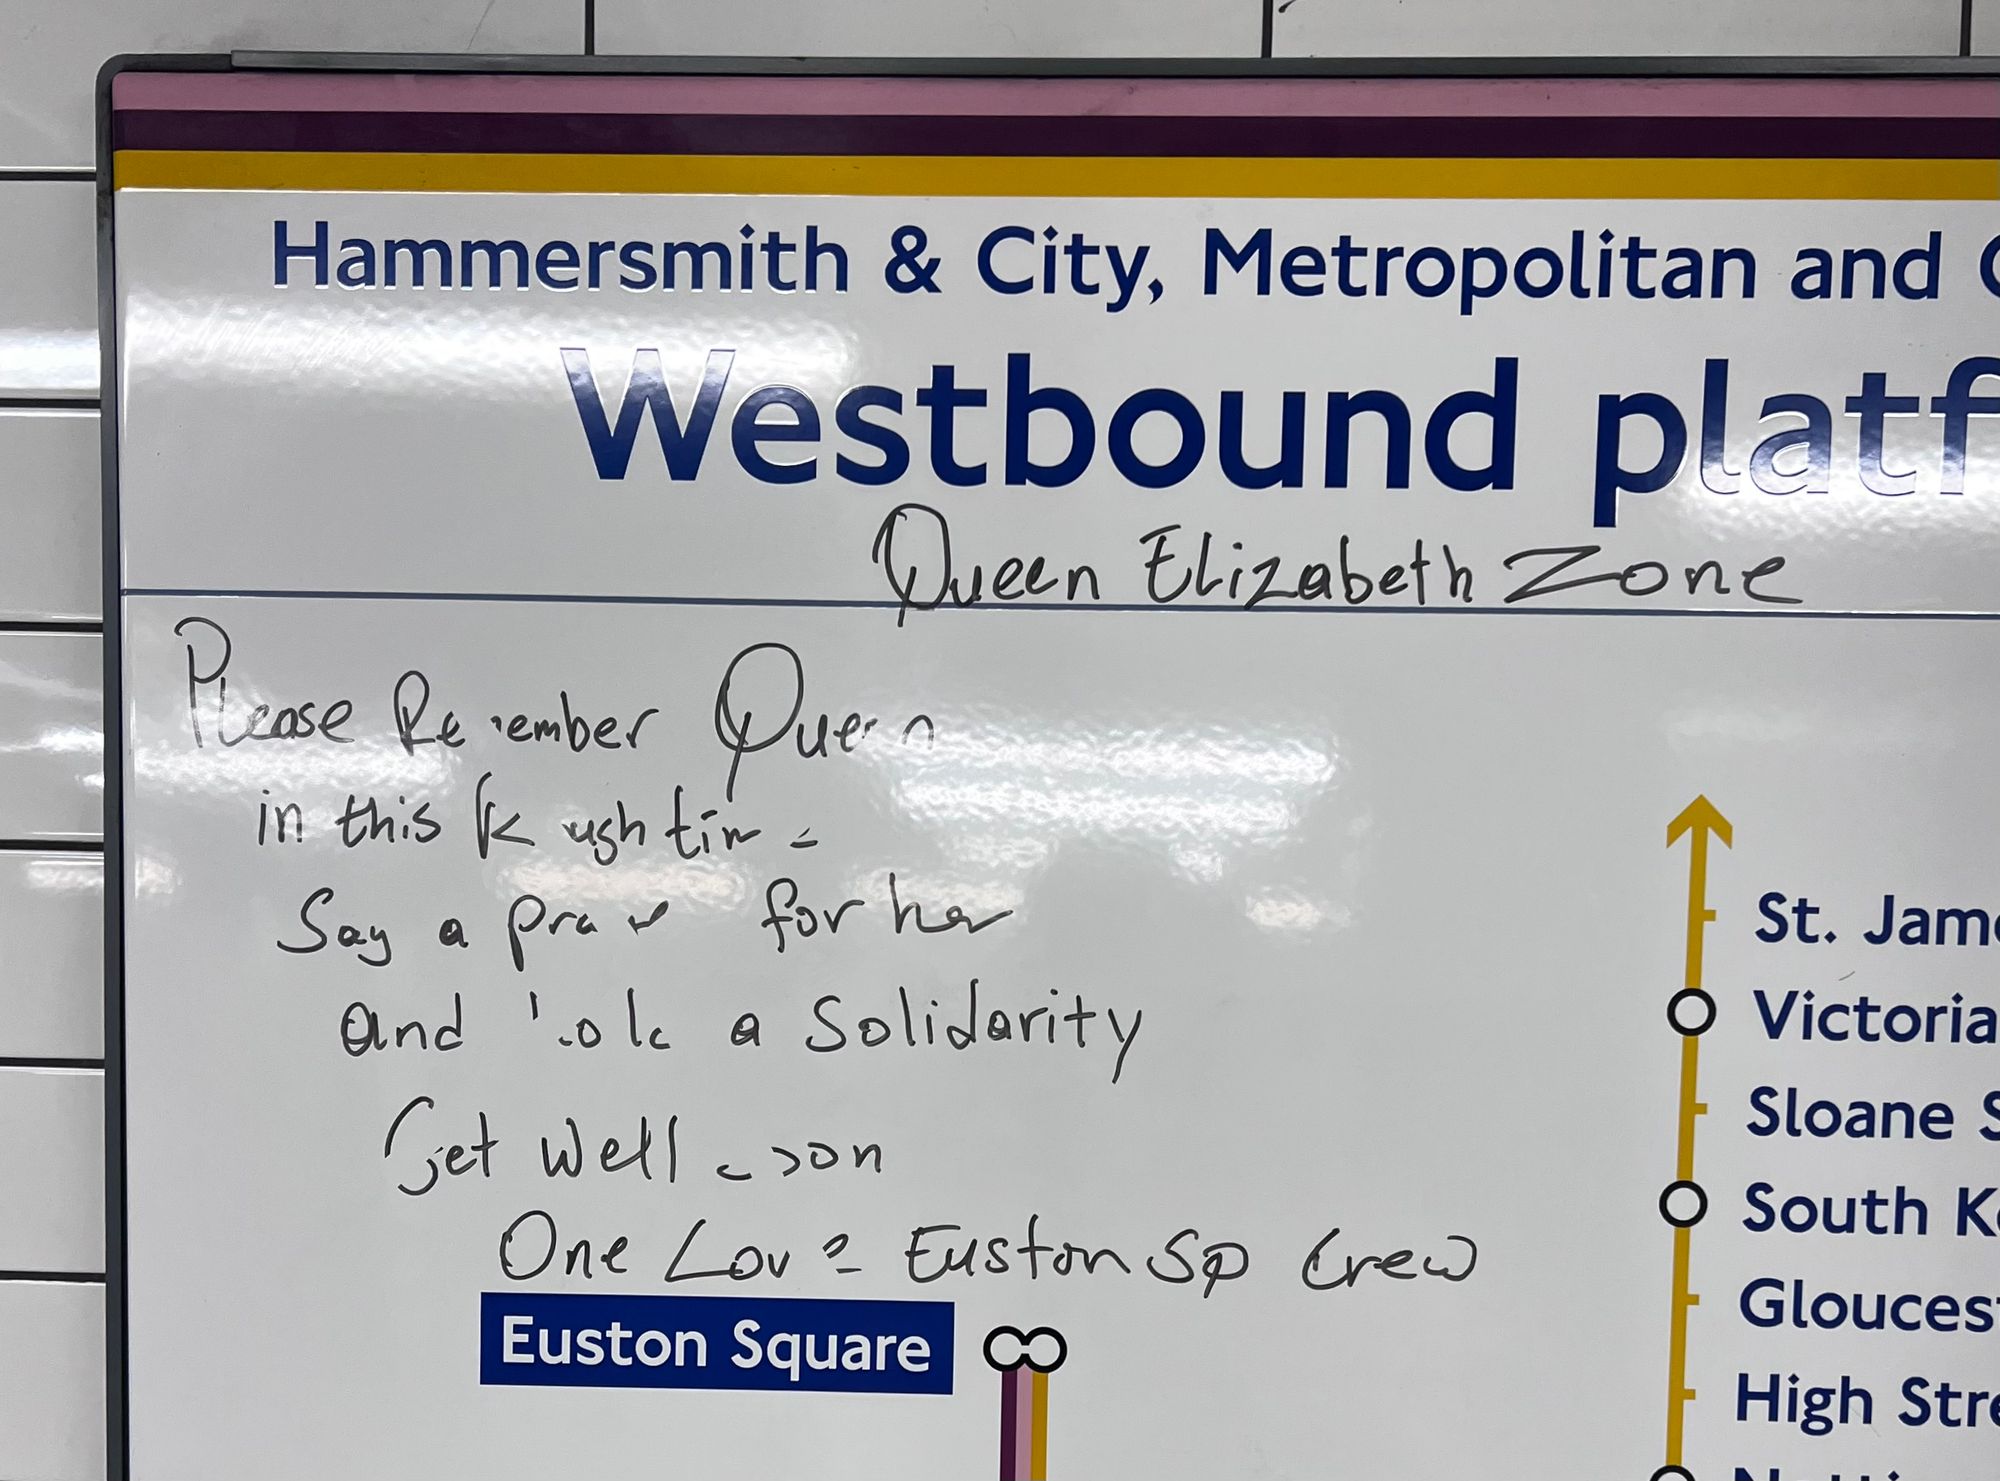 Hammersmith & City, Metropolitan and C
Westbound platf
Queen Elizabeth Zone
Please Remember Queen
in this time
Say a for her
and a Solidarity
Get well soon
One Love Euston Sq Crew
Euston Square
St. Jame
Victoria
Sloane S
South Ke
Gloucest
High Stre